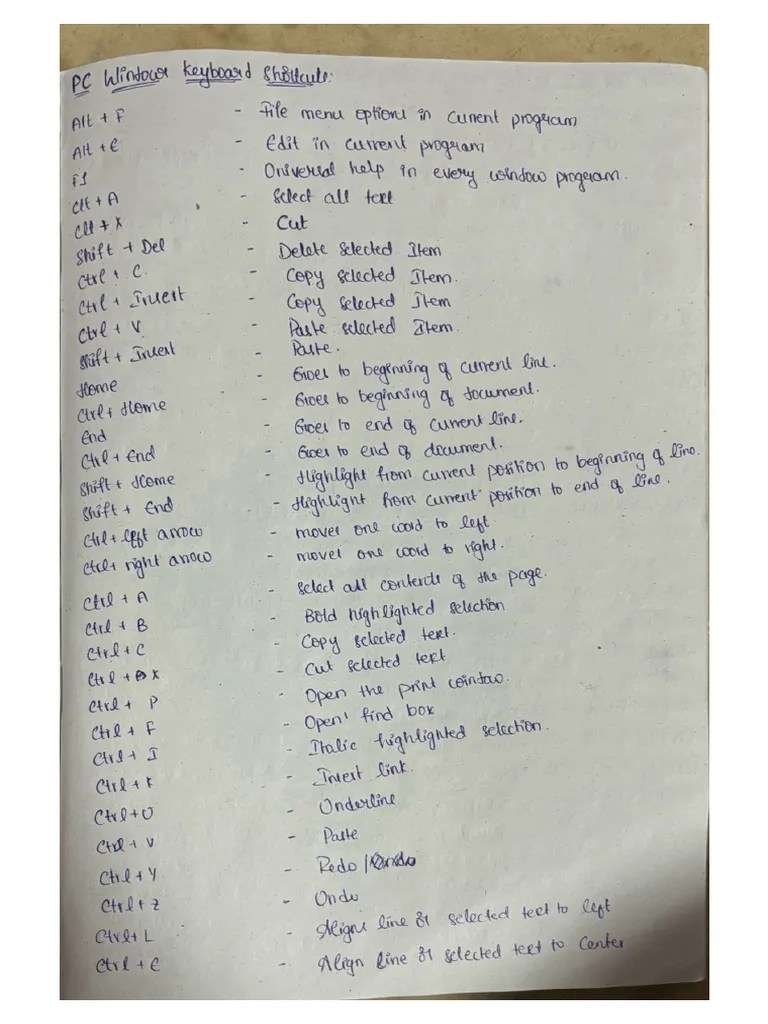 PC Window Keyboard Shortcuts:
Alt + F - File menu options in current program
Alt + E - Edit in current program
F1 - Universal help in every window program.
Clt + A - Select all text
Clt + X - Cut
Shift + Del - Delete selected Item
Ctrl + C. - Copy selected Item.
Ctrl + Insert - Copy selected Item
Ctrl + V - Paste selected Item.
Shift + Insert - Paste.
Home - Goes to beginning of current line.
Ctrl + Home - Goes to beginning of document.
End - Goes to end of current line.
Ctrl + End - Goes to end of document.
Shift + Home - Highlight from current position to beginning of line.
Shift + End - Highlight from current position to end of line.
Ctrl + left arrow - moves one word to left
Ctrl + right arrow - moves one word to right.
Ctrl + A - Select all contents of the page.
Ctrl + B - Bold highlighted selection
Ctrl + C - Copy selected text.
Ctrl + X - Cut selected text
Ctrl + P - Open the print window.
Ctrl + F - Open find box
Ctrl + I - Italic highlighted selection.
Ctrl + K - Insert link.
Ctrl + U - Underline
Ctrl + V - Paste
Ctrl + Y - Redo /
Ctrl + Z - Undo
Ctrl + L - Aligns line or selected text to left
Ctrl + E - Align line or selected text to Center